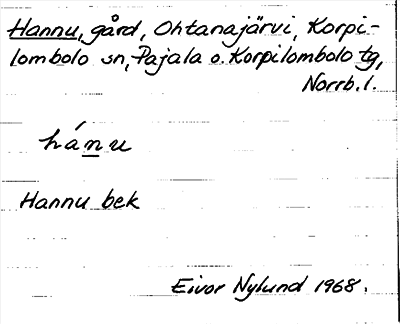 Hannu, gård, Ohtanajärvi, Korpi-
lombolo sn, Pajala o. Korpilombolo tg,
Norrb. l.
hánu
Hannu bek
Eivor Nylund 1968.